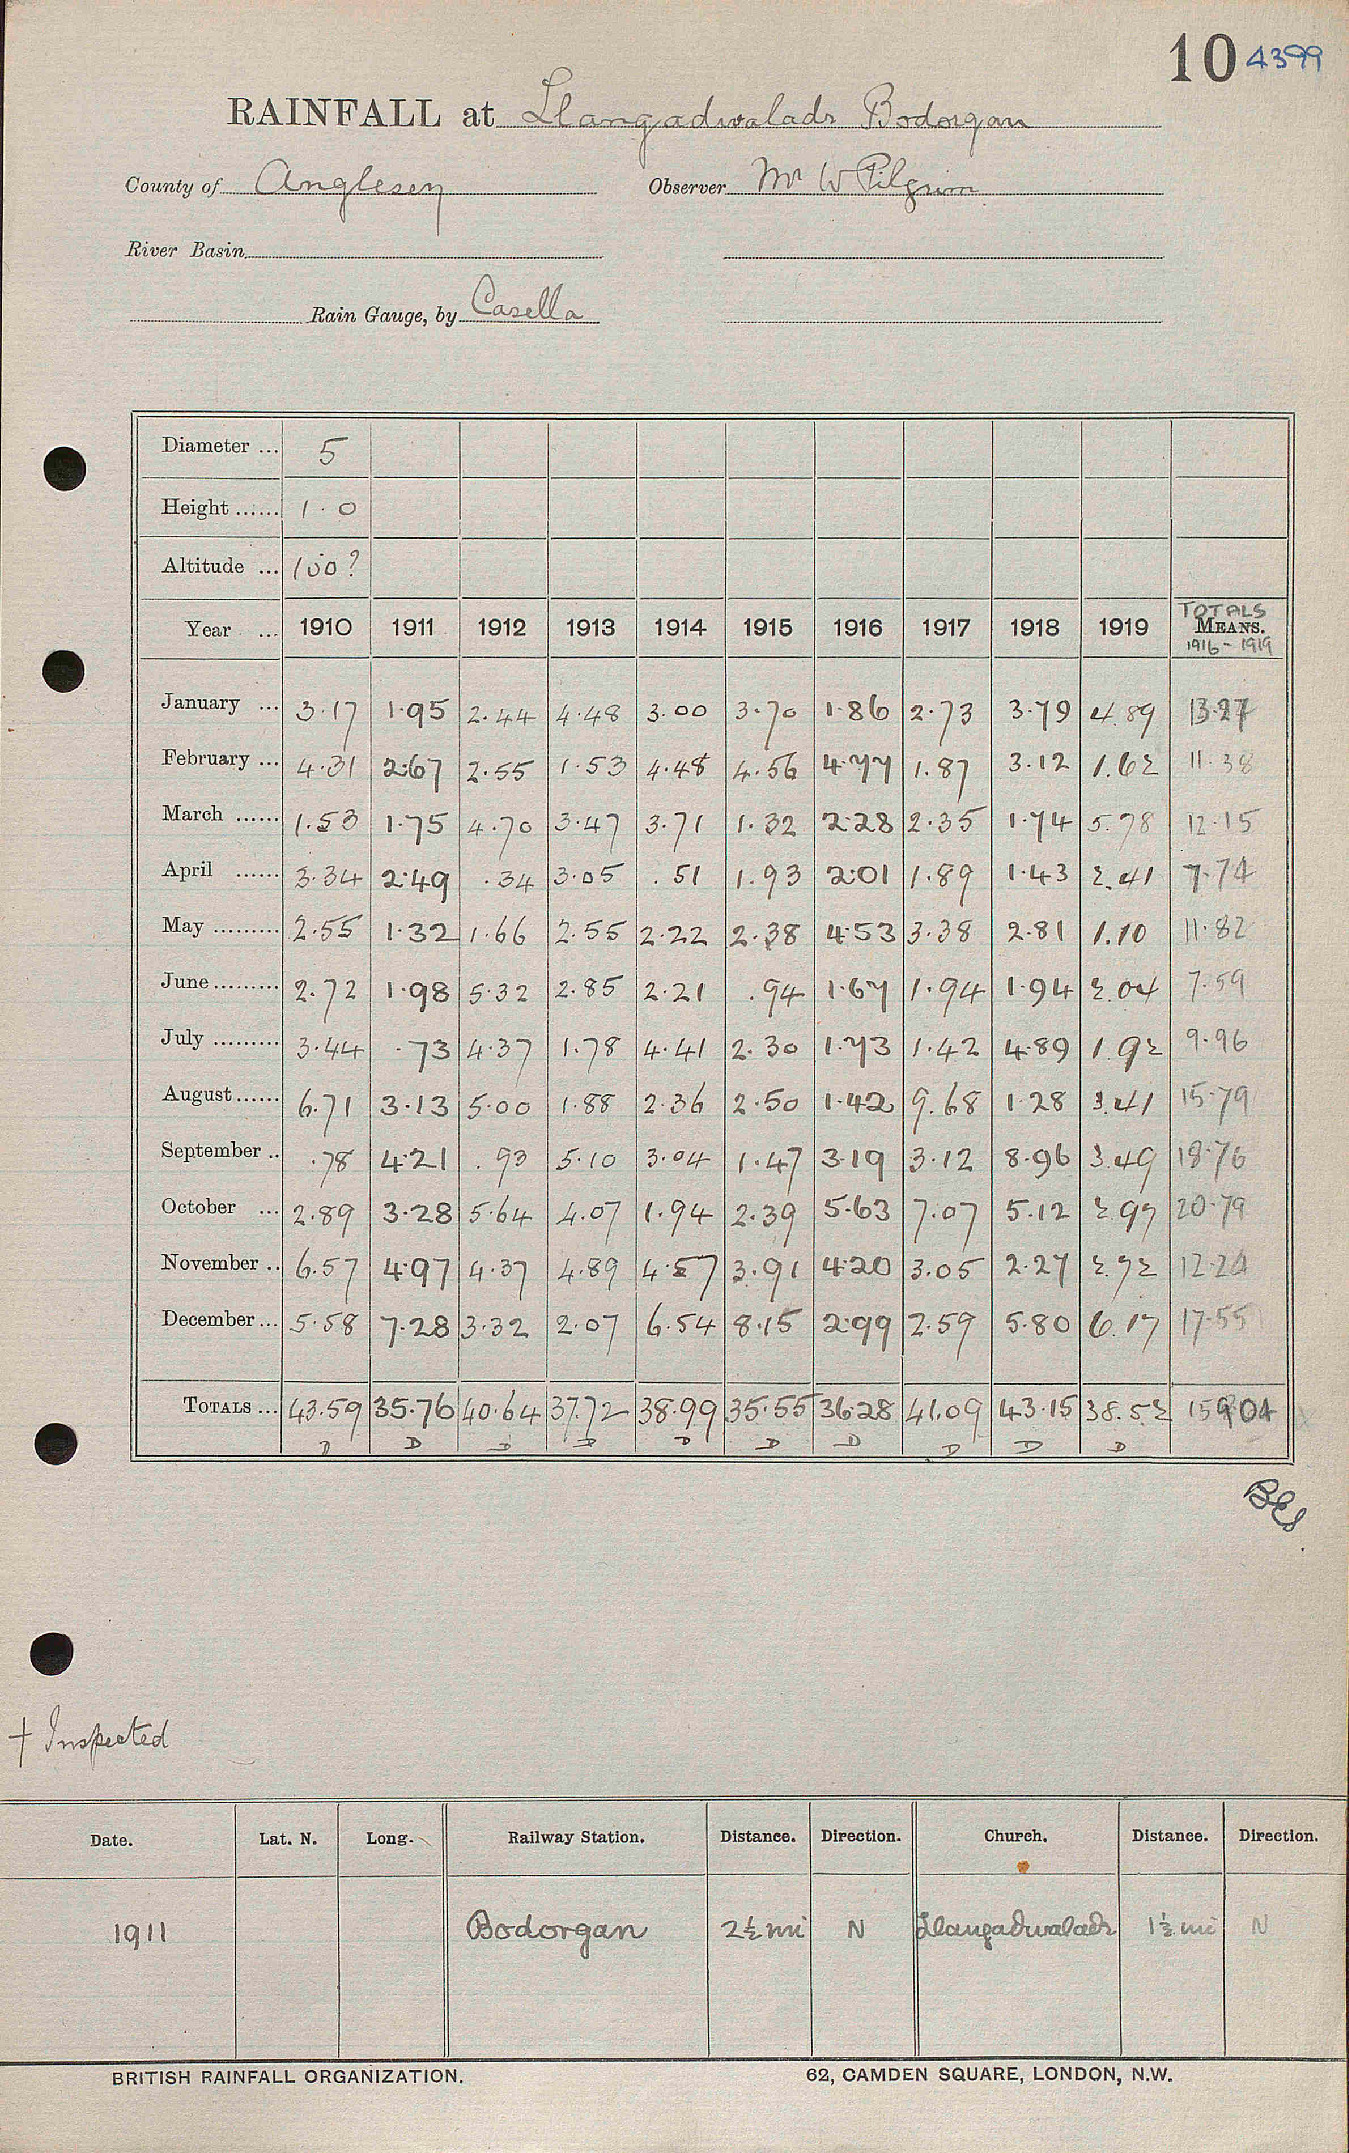 10 4399
RAINFALL at Llangadwaladr Bodorgan
County of Anglesey Observer Mr W Pilgrim
River Basin
Rain Gauge, by Casella
Diameter ... 5
Height ...... 1.0
Altitude ... 100?
Year ... 1910 1911 1912 1913 1914 1915 1916 1917 1918 1919 TOTALS MEANS. 1916-1919
January ... 3.17 1.95 2.44 4.48 3.00 3.70 1.86 2.73 3.79 4.89 13.27
February ... 4.31 2.67 2.55 1.53 4.48 4.56 4.77 1.87 3.12 1.62 11.38
March ...... 1.53 1.75 4.70 3.47 3.71 1.32 2.28 2.35 1.74 5.78 12.15
April ...... 3.34 2.49 .34 3.05 .51 1.93 2.01 1.89 1.43 2.41 7.74
May ......... 2.55 1.32 1.66 2.55 2.22 2.38 4.53 3.38 2.81 1.10 11.82
June ......... 2.72 1.98 5.32 2.85 2.21 .94 1.67 1.94 1.94 2.04 7.59
July ......... 3.44 .73 4.37 1.78 4.41 2.30 1.73 1.42 4.89 1.92 9.96
August ...... 6.71 3.13 5.00 1.88 2.36 2.50 1.42 9.68 1.28 3.41 15.79
September .. .78 4.21 .93 5.10 3.04 1.47 3.19 3.12 8.96 3.49 18.76
October ... 2.89 3.28 5.64 4.07 1.94 2.39 5.63 7.07 5.12 2.97 20.79
November .. 6.57 4.97 4.37 4.89 4.57 3.91 4.20 3.05 2.27 2.72 12.24
December ... 5.58 7.28 3.32 2.07 6.54 8.15 2.99 2.59 5.80 6.17 17.55
TOTALS ... 43.59 35.76 40.64 37.72 38.99 35.55 36.28 41.09 43.15 38.52 159.04
D D D D D D D D D D
+ Inspected
Date. Lat. N. Long. Railway Station. Distance. Direction. Church. Distance. Direction.
1911 Bodorgan 2½ mi N Llangadwaladr 1½ mi N
BRITISH RAINFALL ORGANIZATION. 62, CAMDEN SQUARE, LONDON, N.W.